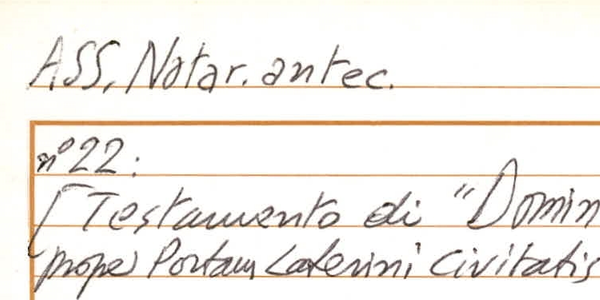 ASS, Notar. antec.
n° 22:
[Testamento di "Domin
prope Portam Laterini civitatis